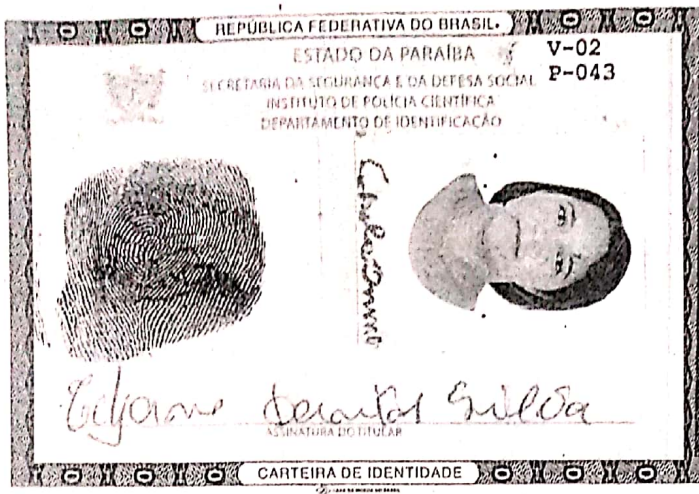 REPÚBLICA FEDERATIVA DO BRASIL
ESTADO DA PARAÍBA
V-02
P-043
SECRETARIA DA SEGURANÇA E DA DEFESA SOCIAL
INSTITUTO DE POLÍCIA CIENTÍFICA
DEPARTAMENTO DE IDENTIFICAÇÃO
Silva
ASSINATURA DO TITULAR
CARTEIRA DE IDENTIDADE